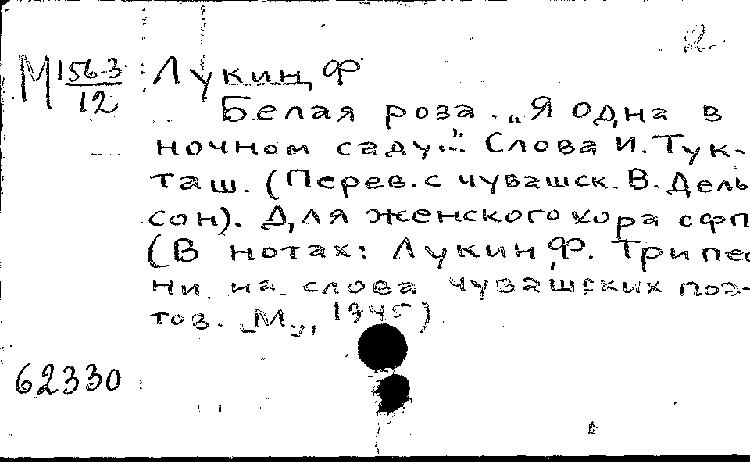 2.
М 1563/12 Лукин, Ф
Белая роза. „Я одна в
ночном саду..." Слова И. Тук-
таш. (Перев. с чувашск. В. Дель
сон). Для женского хора с фп
(В нотах: Лукин, Ф. Три пес
ни на слова чувашских поэ-
тов. М., 1945)
62330